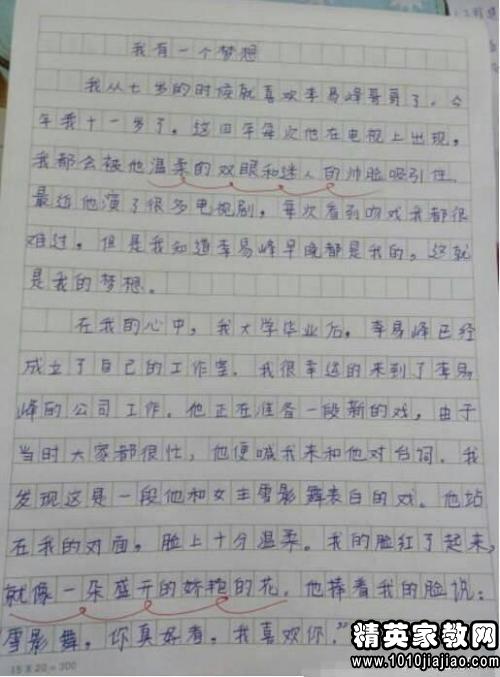 我有一个梦想
我从七岁的时候就喜欢李易峰哥哥了，今
年我十一岁了。这四年每次他在电视上出现，
我都会被他温柔的双眼和迷人的帅脸吸引住。
最近他演了很多电视剧，每次看到吻戏我都很
难过，但是我知道李易峰早晚都是我的，这就
是我的梦想。
在我的心中，我大学毕业后，李易峰已经
成立了自己的工作室。我很幸运的来到了李易
峰的公司工作。他正在准备一段新的戏，由于
当时大家都很忙，他便喊我来和他对台词。我
发现这是一段他和女主雪影舞表白的戏。他站
在我的对面，脸上十分温柔。我的脸红了起来，
就像一朵盛开的娇艳的花。他捧着我的脸说：
雪影舞，你真好看，我喜欢你.”
15×20=300
精英家教网
www.1010jiajiao.com